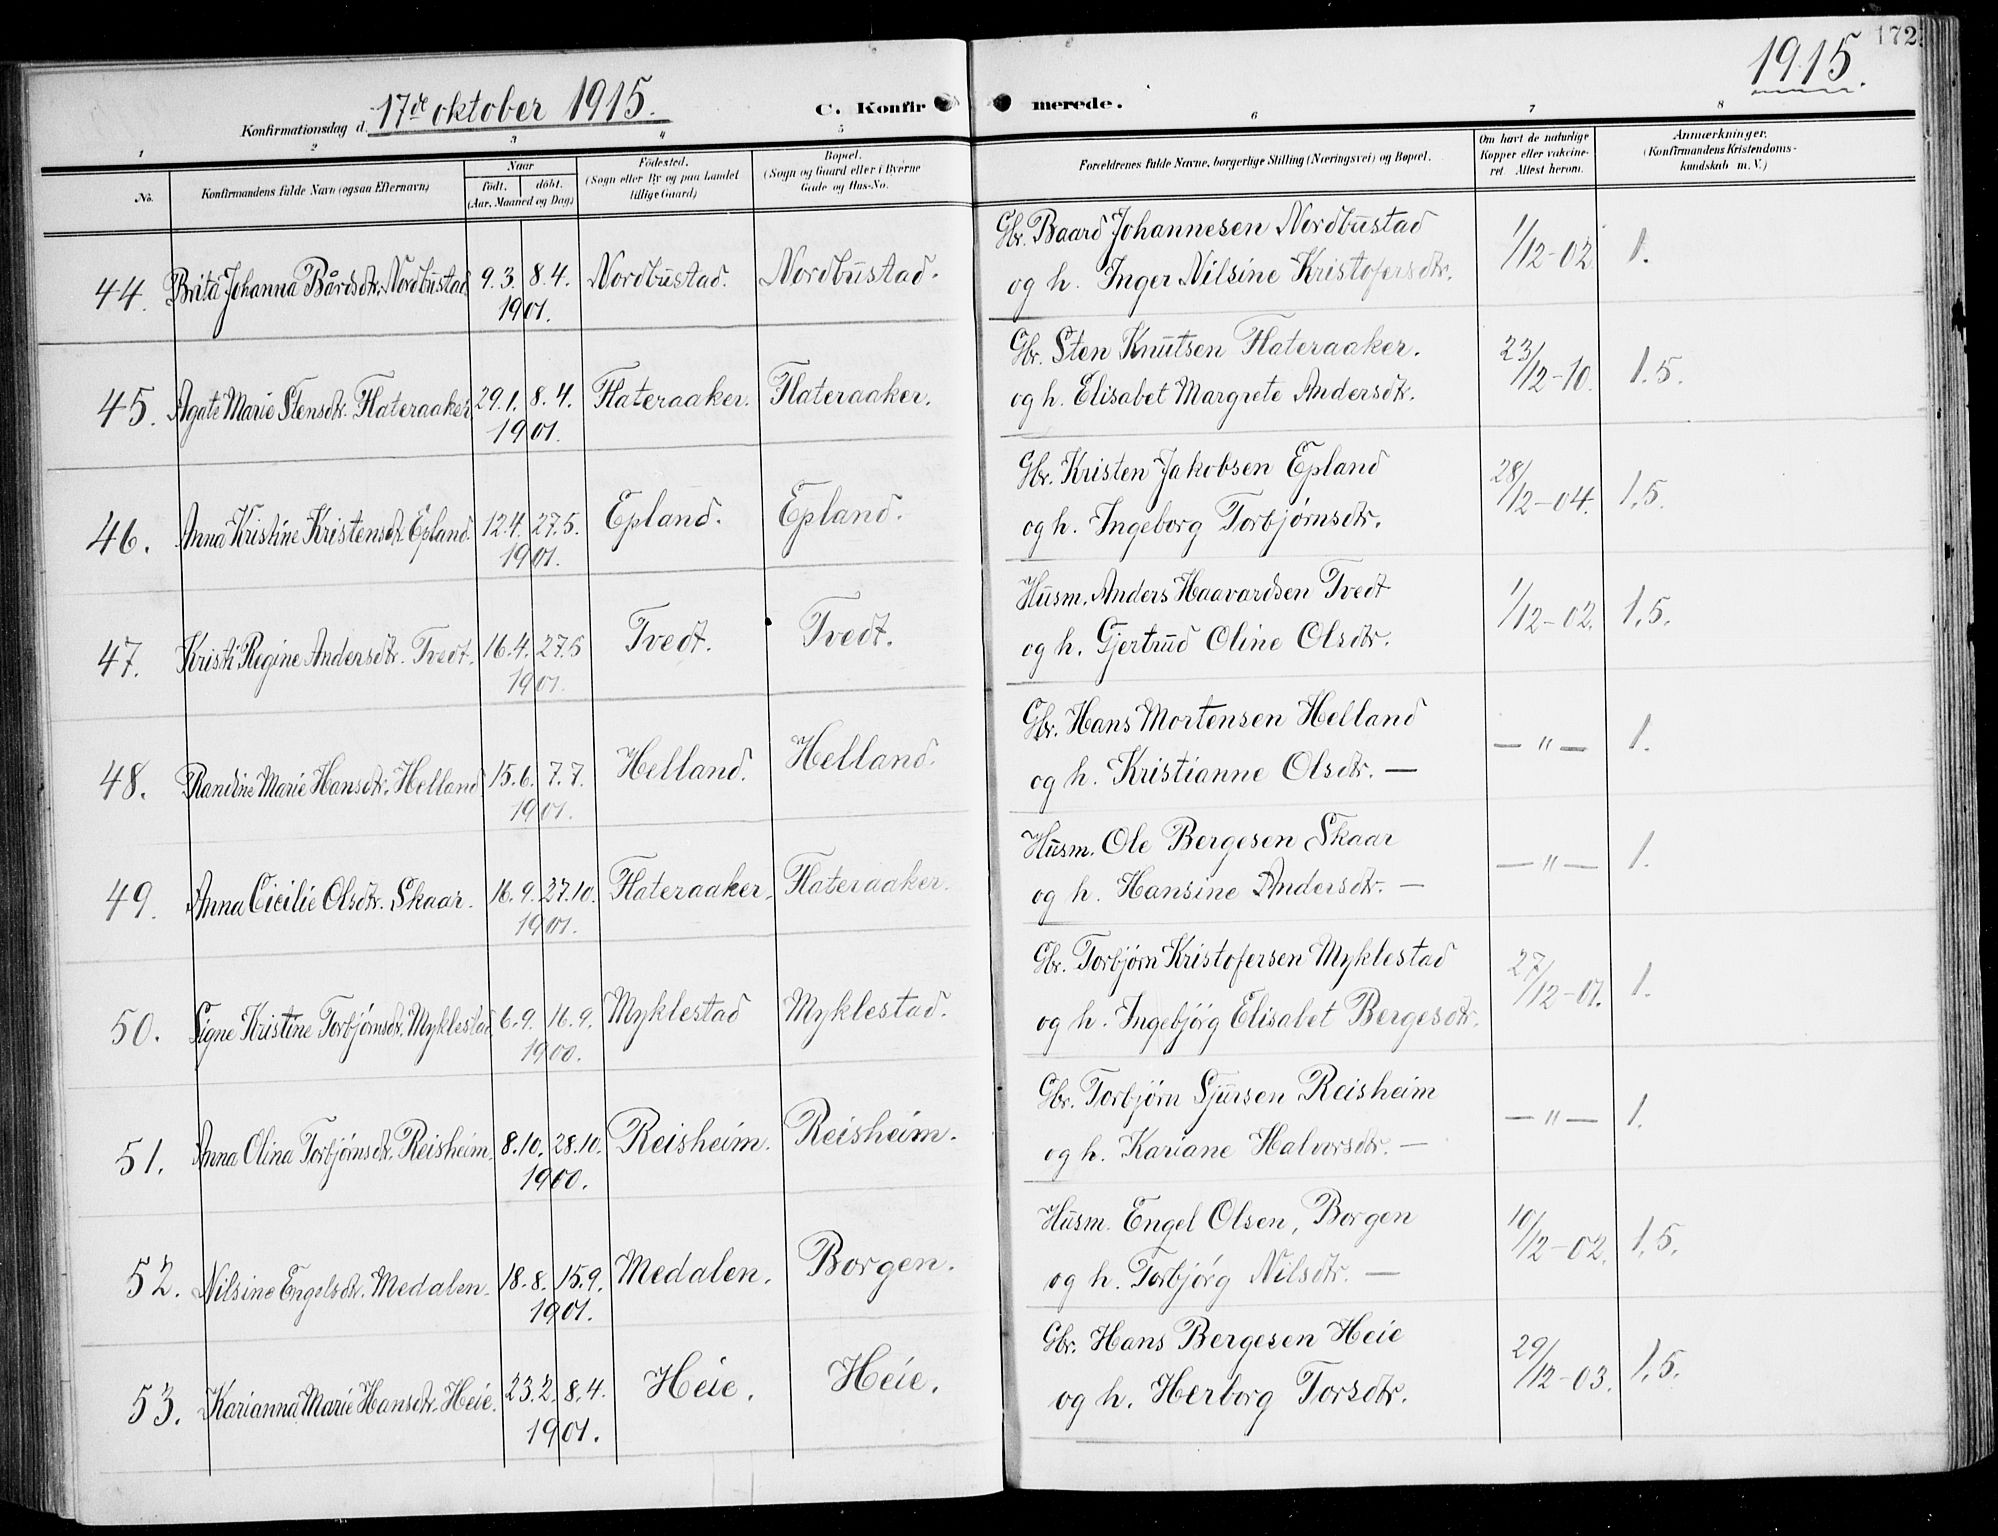 172
1915.
Konfirmationsdag d. 17de oktober 1915. C. Konfirmerede.
1 2 3 4 5 6 7 8
No. Konfirmandens fulde Navn (ogsaa Efternavn) Naar født. døbt. (Aar, Maaned og Dag) Fødested. (Sogn eller By og paa Landet tillige Gaard) Bopæl. (Sogn og Gaard eller i Byerne Gade og Hus-No. Forældrenes fulde Navne, borgerlige Stilling (Næringsvei) og Bopæl. Om havt de naturlige Kopper eller vakcineret. Attest herom. Anmærkninger. (Konfirmandens Kristendomskundskab m. V.)
44. Brita Johanna Bårdsdtr. Nordbustad 9.3. 8.4. Nordbustad. Nordbustad. Gbr. Baard Johannesen Nordbustad 1/12-02 1.
1901. og h. Inger Nilsine Kristofersdtr.
45. Agate Marie Stensdtr. Flateraaker 29.1. 8.4. Flateraaker. Flateraaker. Gbr. Sten Knutsen Flateraaker. 23/12-10. 1.5.
1901. og h. Elisabet Margrete Andersdtr.
46. Anna Kristine Kristensdtr. Epland 12.4. 27.5. Epland. Epland. Gbr. Kristen Jakobsen Epland 28/12-04. 1.5.
1901. og h. Ingeborg Torbjørnsdtr.
47. Kristi Regine Andersdtr. Tvedt. 16.4. 27.5 Tvedt. Tvedt. Husm. Anders Haavardsen Tvedt 1/12-02. 1.5.
1901. og h. Gjertrud Oline Olsdtr.
48. Randine Marie Hansdtr. Helland 15.6. 7.7. Helland. Helland. Gbr. Hans Mortensen Helland — " — 1.
1901. og h. Kristianne Olsdtr. —
49. Anna Cicilie Olsdtr. Skaar. 16.9. 27.10. Flateraaker. Flateraaker. Husm. Ole Bergesen Skaar — " — 1.
1901. og h. Hansine Andersdtr. —
50. Signe Kristine Torbjørnsdtr. Myklestad 6.9. 16.9. Myklestad Myklestad. Gbr. Torbjørn Kristofersen Myklestad 27/12-01. 1.
1900. og h. Ingebjørg Elisabet Bergesdtr.
51. Anna Olina Torbjørnsdtr. Reisheim. 8.10. 28.10. Reisheim. Reisheim. Gbr. Torbjørn Sjursen Reisheim — " — 1.
1900. og h. Kariane Halvorsdtr. —
52. Nilsine Engelsdtr. Medalen. 18.8. 15.9. Medalen. Borgen. Husm. Engel Olsen, Borgen 10/12-02. 1.5.
1901. og h. Torbjørg Nilsdtr. —
53. Karianna Marie Hansdtr. Heie. 23.2. 8.4. Heie. Heie. Gbr. Hans Bergesen Heie 29/12-03. 1.5.
1901. og h. Herborg Torsdtr.